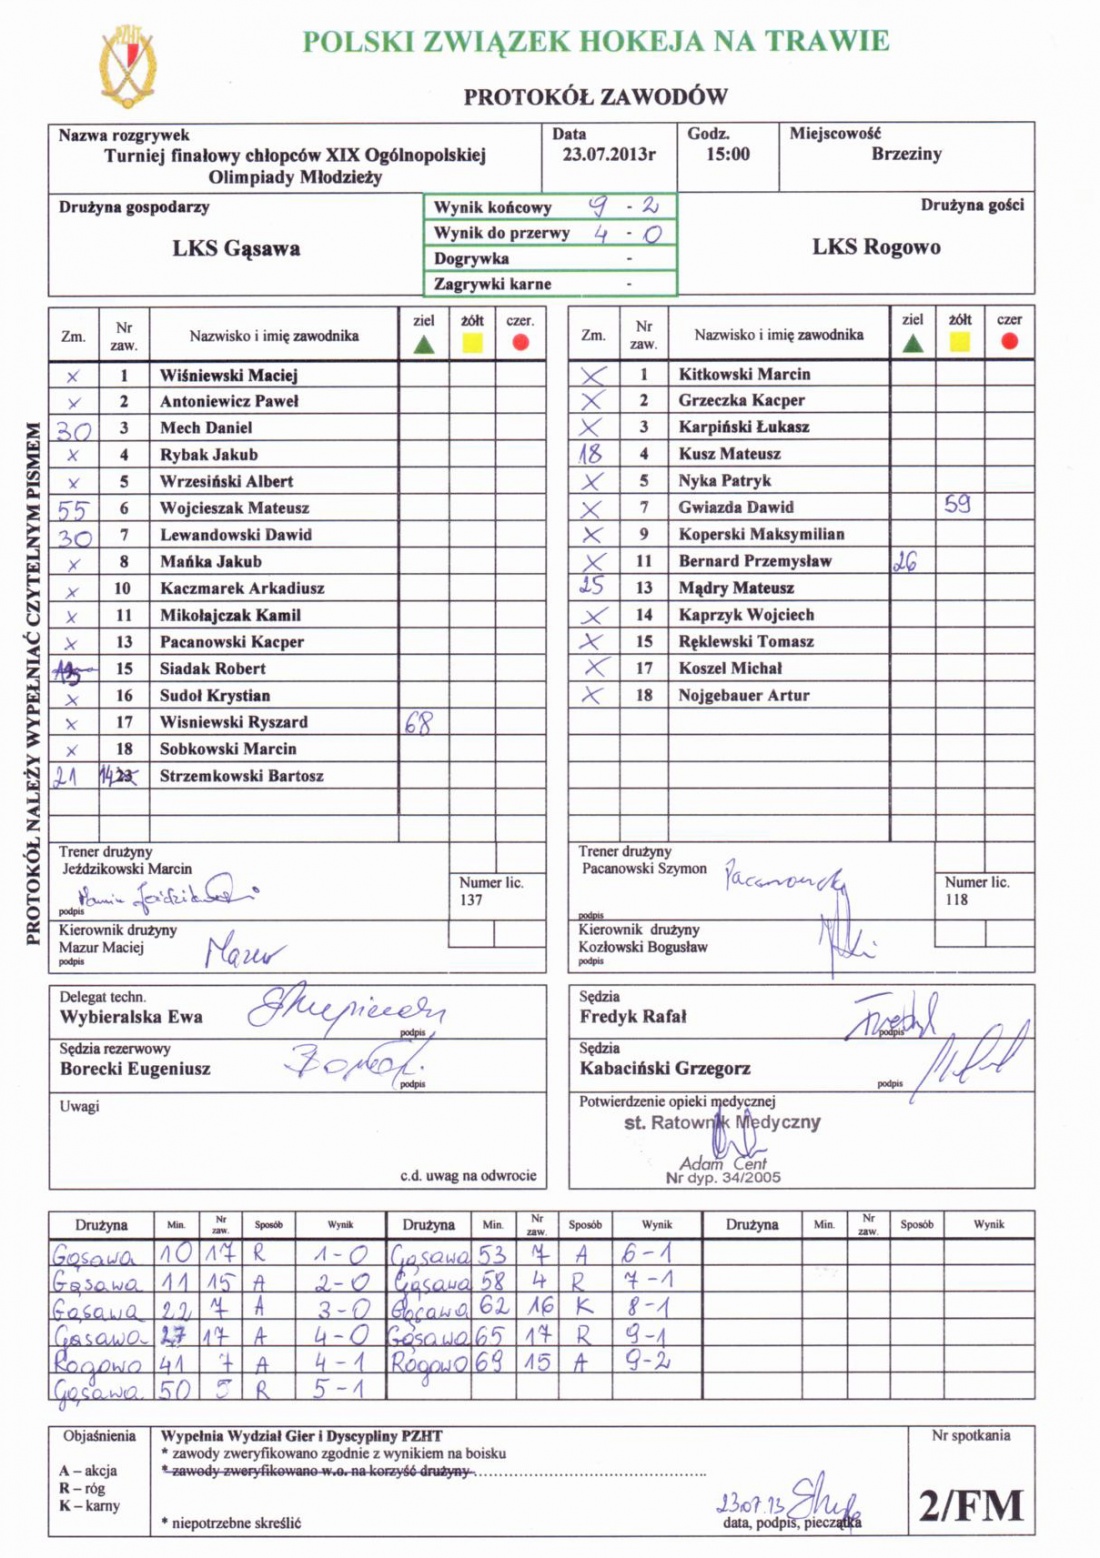 PZHT
POLSKI ZWIĄZEK HOKEJA NA TRAWIE
PROTOKÓŁ ZAWODÓW
Nazwa rozgrywek
Turniej finałowy chłopców XIX Ogólnopolskiej
Olimpiady Młodzieży
Data
23.07.2013r
Godz.
15:00
Miejscowość
Brzeziny
Drużyna gospodarzy
LKS Gąsawa
Wynik końcowy 9 - 2
Wynik do przerwy 4 - 0
Dogrywka -
Zagrywki karne -
Drużyna gości
LKS Rogowo
PROTOKÓŁ NALEŻY WYPEŁNIAĆ CZYTELNYM PISMEM
Zm. Nr zaw. Nazwisko i imię zawodnika ziel żółt czer.
x 1 Wiśniewski Maciej
x 2 Antoniewicz Paweł
30 3 Mech Daniel
x 4 Rybak Jakub
x 5 Wrzesiński Albert
55 6 Wojcieszak Mateusz
30 7 Lewandowski Dawid
x 8 Mańka Jakub
x 10 Kaczmarek Arkadiusz
x 11 Mikołajczak Kamil
x 13 Pacanowski Kacper
15 Siadak Robert
x 16 Sudoł Krystian
x 17 Wisniewski Ryszard 68
x 18 Sobkowski Marcin
21 14 23 Strzemkowski Bartosz
Trener drużyny
Jeździkowski Marcin
podpis
Numer lic.
137
Kierownik drużyny
Mazur Maciej
podpis
Mazur
Zm. Nr zaw. Nazwisko i imię zawodnika ziel żółt czer
X 1 Kitkowski Marcin
X 2 Grzeczka Kacper
X 3 Karpiński Łukasz
18 4 Kusz Mateusz
X 5 Nyka Patryk
X 7 Gwiazda Dawid 59
X 9 Koperski Maksymilian
X 11 Bernard Przemysław 26
25 13 Mądry Mateusz
X 14 Kaprzyk Wojciech
X 15 Ręklewski Tomasz
X 17 Koszel Michał
X 18 Nojgebauer Artur
Trener drużyny
Pacanowski Szymon
podpis
Numer lic.
118
Kierownik drużyny
Kozłowski Bogusław
podpis
Delegat techn.
Wybieralska Ewa
podpis
Sędzia rezerwowy
Borecki Eugeniusz
podpis
Uwagi
c.d. uwag na odwrocie
Sędzia
Fredyk Rafał
podpis
Sędzia
Kabaciński Grzegorz
podpis
Potwierdzenie opieki medycznej
st. Ratownik Medyczny
Adam Cent
Nr dyp. 34/2005
Drużyna Min. Nr zaw. Sposób Wynik Drużyna Min. Nr zaw. Sposób Wynik Drużyna Min. Nr zaw. Sposób Wynik
Gąsawa 10 17 R 1-0 Gąsawa 53 7 A 6-1
Gąsawa 11 15 A 2-0 Gąsawa 58 4 R 7-1
Gąsawa 22 7 A 3-0 Gąsawa 62 16 K 8-1
Gąsawa 27 17 A 4-0 Gąsawa 65 17 R 9-1
Rogowo 41 7 A 4-1 Rogowo 69 15 A 9-2
Gąsawa 50 R 5-1
Objaśnienia
A – akcja
R – róg
K – karny
Wypełnia Wydział Gier i Dyscypliny PZHT
* zawody zweryfikowano zgodnie z wynikiem na boisku
* zawody zweryfikowano w.o. na korzyść drużyny
* niepotrzebne skreślić
23.07.13
data, podpis, pieczątka
Nr spotkania
2/FM